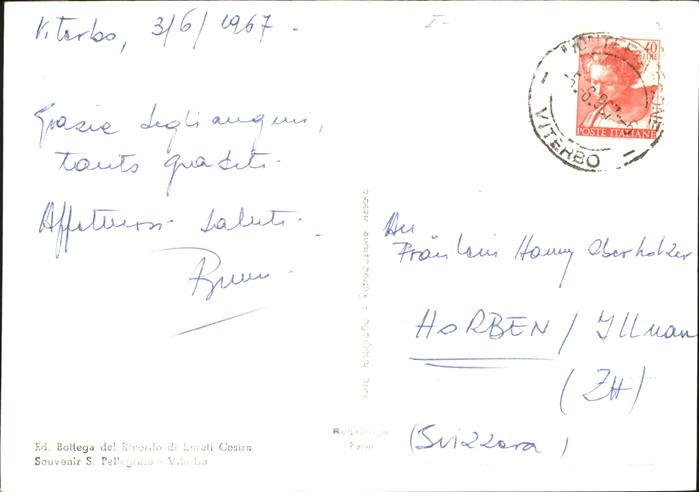 Viterbo, 3/6/1967.
Grazie degli auguri,
tanto graditi.
Affettuosi saluti.
Ed. Bottega del Ricordo di Loreti Cesira
Souvenir S. Pellegrino - Viterbo
Vera fotografia - Riproduzione vietata
40
LIRE
POSTE ITALIANE
VITERBO
An
Fräulein Hanny Oberholzer
HORBEN / Illnau
(ZH)
(Svizzera)